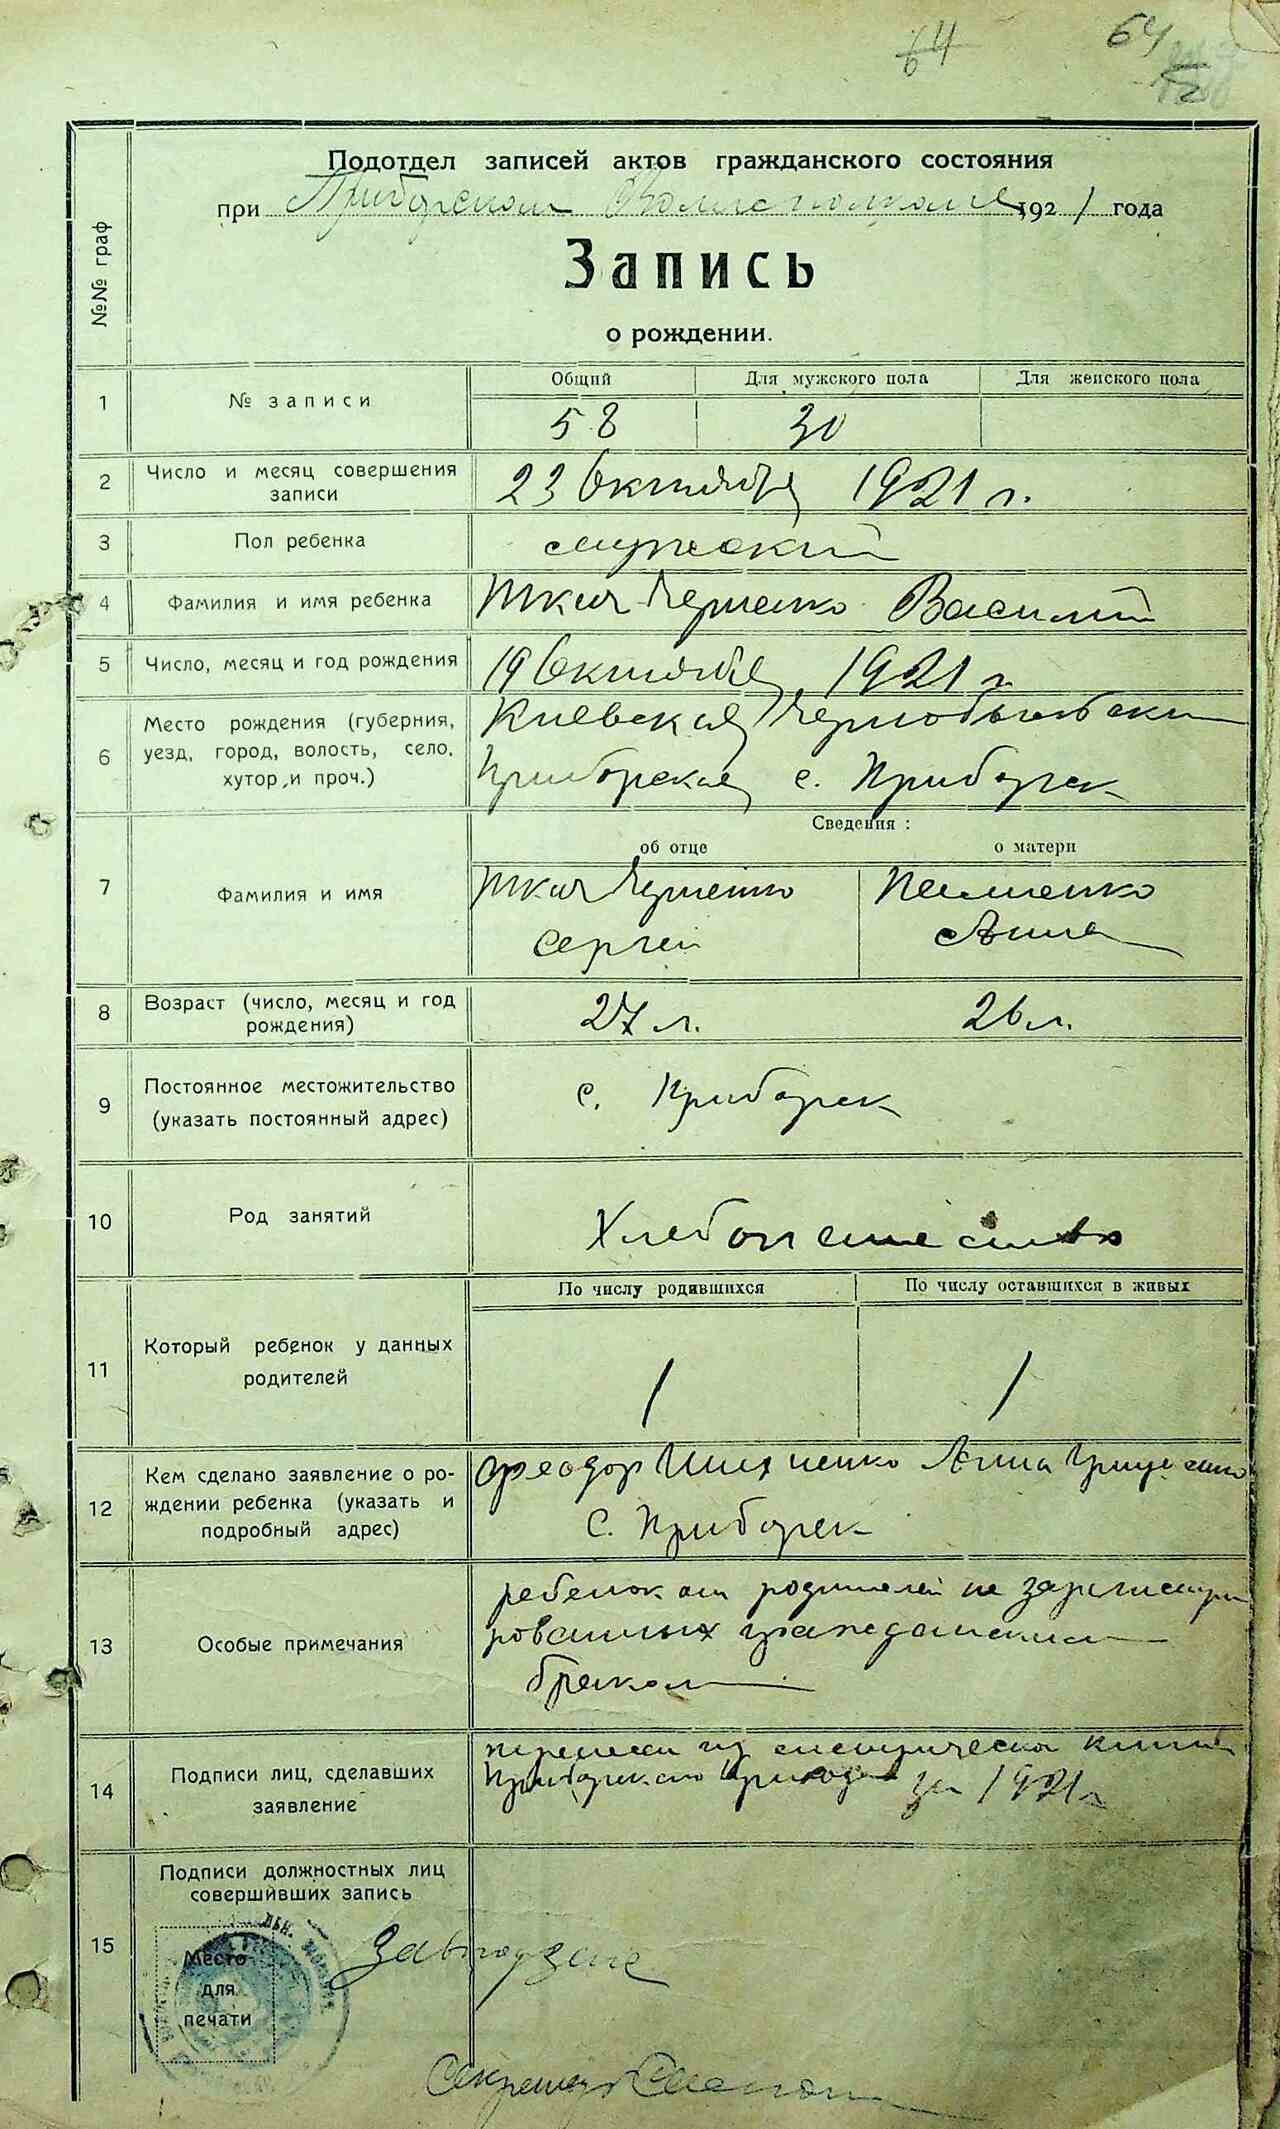 64
64
Подотдел записей актов гражданского состояния
при Приборском 1921 года
Запись
о рождении.
№№ граф
Общий Для мужского пола Для женского пола
1 № записи 58 30
2 Число и месяц совершения записи 23 Октября 1921 г.
3 Пол ребенка мужеский
4 Фамилия и имя ребенка Ткач Василий
5 Число, месяц и год рождения 19 Октября 1921 г
6 Место рождения (губерния, уезд, город, волость, село, хутор, и проч.) Киевская Чернобыльский
Приборская с. Приборск
Сведения:
об отце о матери
7 Фамилия и имя Ткач
Сергей Анна
8 Возраст (число, месяц и год рождения) 27 л. 26 л.
9 Постоянное местожительство (указать постоянный адрес) с. Приборск
10 Род занятий Хлебопашество
По числу родившихся По числу оставшихся в живых
11 Который ребенок у данных родителей 1 1
12 Кем сделано заявление о рождении ребенка (указать и подробный адрес) Феодор Анна
с. Приборск
13 Особые примечания ребенок от родителей не зарегистри
рованных гражданским
браком
14 Подписи лиц, сделавших заявление из метрической книги
Приборского прихода за 1921 г
15 Подписи должностных лиц совершивших запись
Место
для
печати
Завподзаг
Секретарь